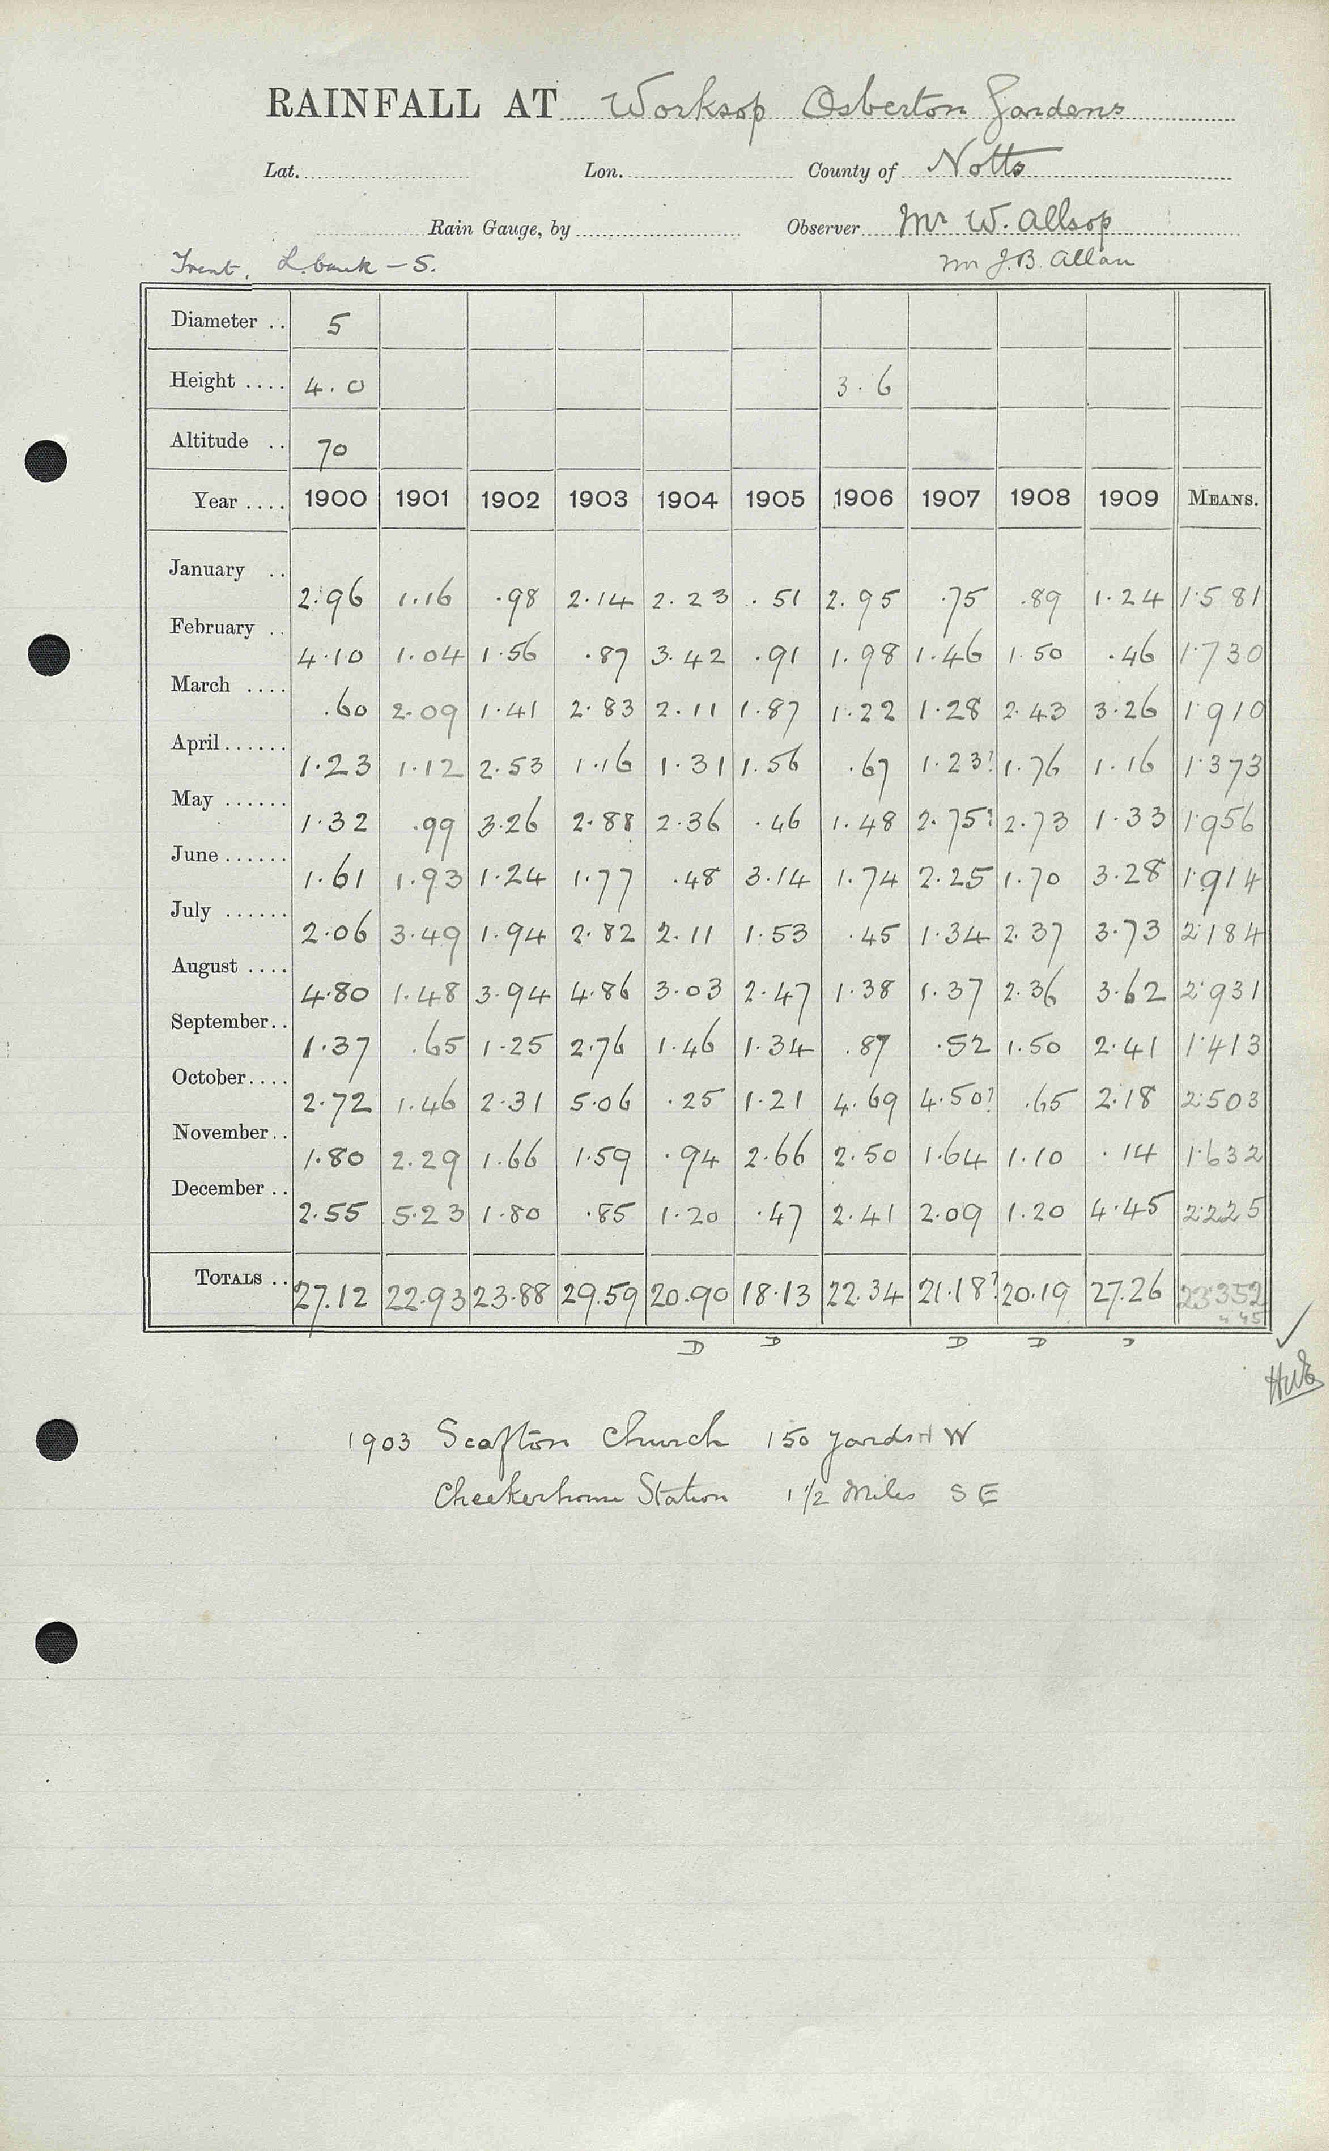 RAINFALL AT Worksop Osberton Gardens
Lat. Lon. County of Notts
Rain Gauge, by Observer Mr W. Allsop
Trent. L. bank - S. Mr J.B. Allan
Diameter .. 5
Height .... 4.0 3.6
Altitude .. 70
Year .... 1900 1901 1902 1903 1904 1905 1906 1907 1908 1909 MEANS.
January .. 2.96 1.16 .98 2.14 2.23 .51 2.95 .75 .89 1.24 1.581
February .. 4.10 1.04 1.56 .87 3.42 .91 1.98 1.46 1.50 .46 1.730
March .... .60 2.09 1.41 2.83 2.11 1.87 1.22 1.28 2.43 3.26 1.910
April ...... 1.23 1.12 2.53 1.16 1.31 1.56 .67 1.23? 1.76 1.16 1.373
May ...... 1.32 .99 3.26 2.88 2.36 .46 1.48 2.75? 2.73 1.33 1.956
June ...... 1.61 1.93 1.24 1.77 .48 3.14 1.74 2.25 1.70 3.28 1.914
July ...... 2.06 3.49 1.94 2.82 2.11 1.53 .45 1.34 2.37 3.73 2.184
August .... 4.80 1.48 3.94 4.86 3.03 2.47 1.38 1.37 2.36 3.62 2.931
September.. 1.37 .65 1.25 2.76 1.46 1.34 .87 .52 1.50 2.41 1.413
October.... 2.72 1.46 2.31 5.06 .25 1.21 4.69 4.50? .65 2.18 2.503
November.. 1.80 2.29 1.66 1.59 .94 2.66 2.50 1.64 1.10 .14 1.632
December .. 2.55 5.23 1.80 .85 1.20 .47 2.41 2.09 1.20 4.45 2.225
TOTALS .. 27.12 22.93 23.88 29.59 20.90 18.13 22.34 21.18? 20.19 27.26 23.352
D D D D D
1903 Scofton Church 150 yards W
Checkerhouse Station 1 1/2 Miles SE